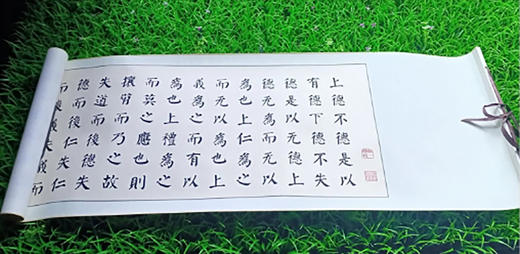 上德不德是以
有德下德不失
德是以无德上
德无為而无以
為也上仁為之
而无以為也上
義為之而有以
為也上禮為之
而莫之應也則
攘臂而乃之故
失道而後德失
德而後仁失仁
而後義失義而